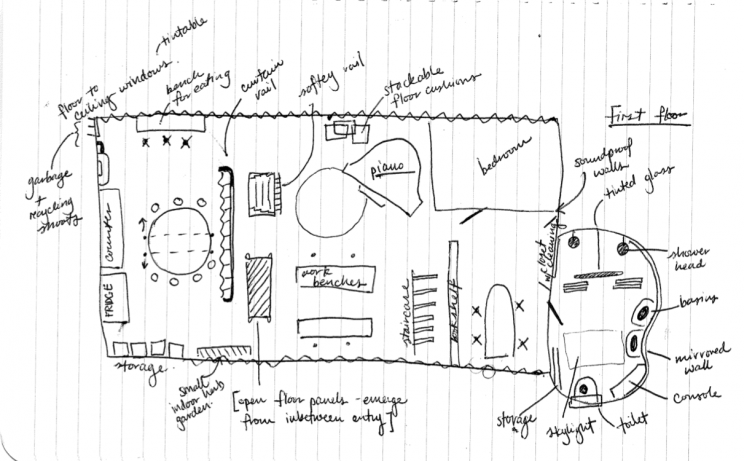 tintable
floor to
ceiling windows.
bench
for eating
curtain
rail
saftey rail
stackable
floor cushions
First floor
garbage
+
recycling
shoots
piano
bedroom
soundproof
walls
tinted glass
counter
closet
+ cleaning
shower
head
FRIDGE
work
benches
staircase
bookshelf
basins
mirrored
wall
storage
small
indoor herb
garden.
[open floor panels - emerge
from inbetween entry]
storage
skylight
toilet
console